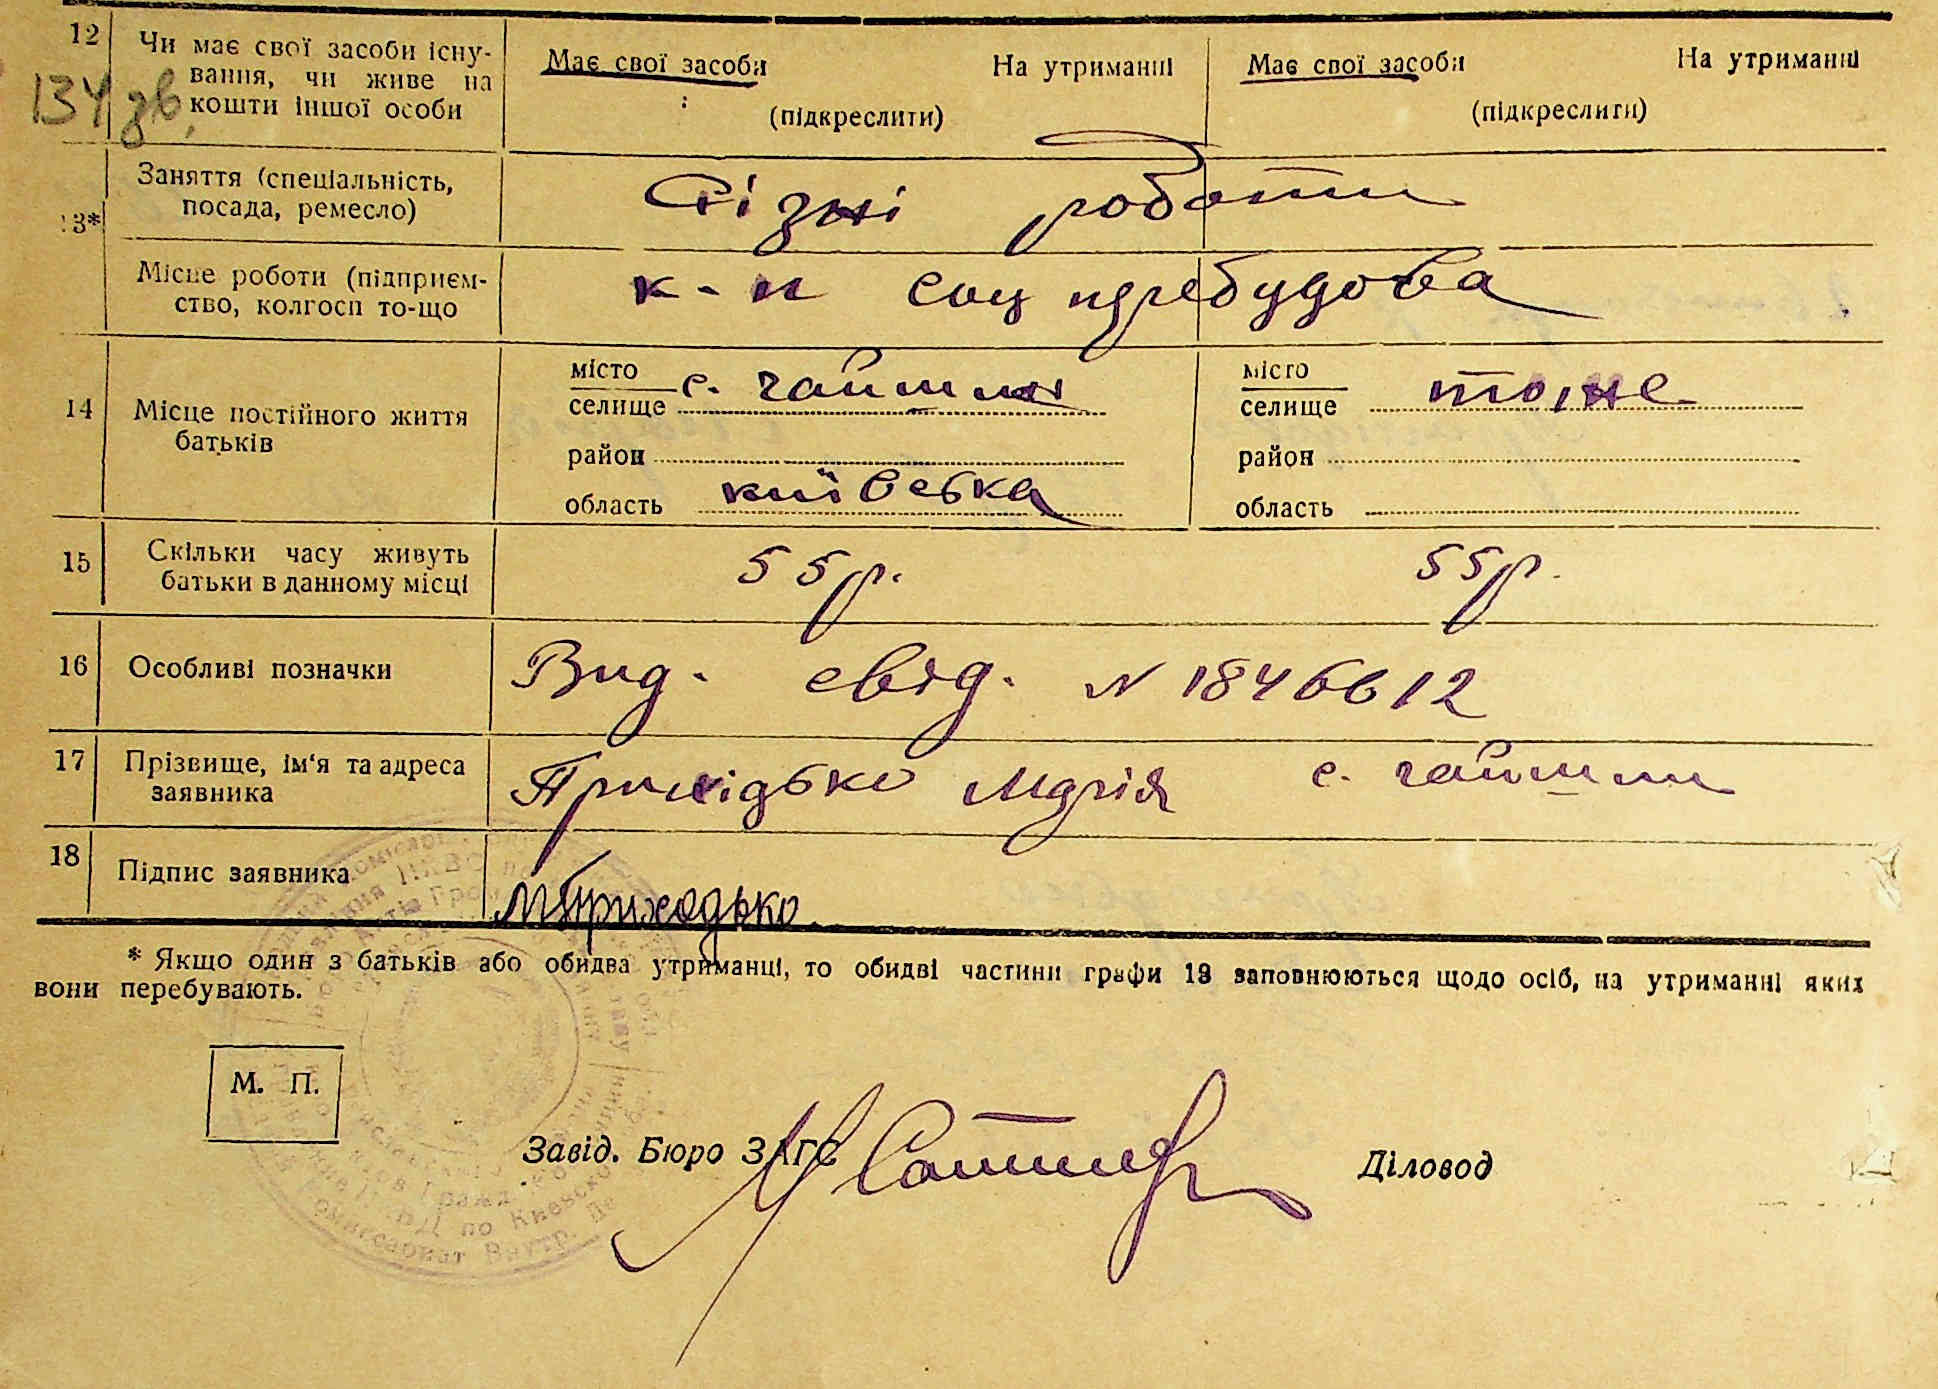 12
Чи має свої засоби існу-
вання, чи живе на
кошти іншої особи
134 зв.
Має свої засоби На утриманні
(підкреслити)
Має свої засоби На утриманні
(підкреслити)
13*
Заняття (спеціальність,
посада, ремесло)
Різні роботи
Місце роботи (підприєм-
ство, колгосп то-що
к-п соц перебудова
14
Місце постійного життя
батьків
місто
селище с. Гайшин
район
область київська
місто
селище тоже
район
область
15
Скільки часу живуть
батьки в данному місці
55 р.
55 р.
16
Особливі позначки
Вид. свід. N 1846612
17
Прізвище, ім'я та адреса
заявника
Прихідько Марія с. Гайшин
18
Підпис заявника
М Приходько
* Якщо один з батьків або обидва утриманці, то обидві частини графи 13 заповнюються щодо осіб, на утриманні яких
вони перебувають.
М. П.
Завід. Бюро ЗАГС
Діловод